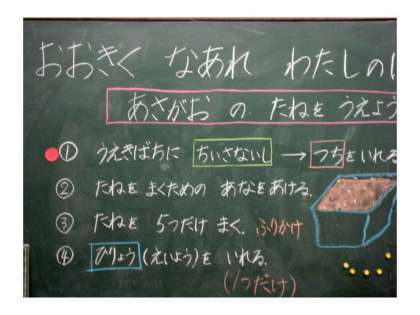 おおきく なあれ わたしの
あさがお の たねを うえよう
① うえきばちに ちいさないし → つちをいれる
② たねを まくための あなをあける.
③ たねを 5つだけ まく. ふりかけ
④ ひりょう(えいよう)を いれる.
(1つだけ)